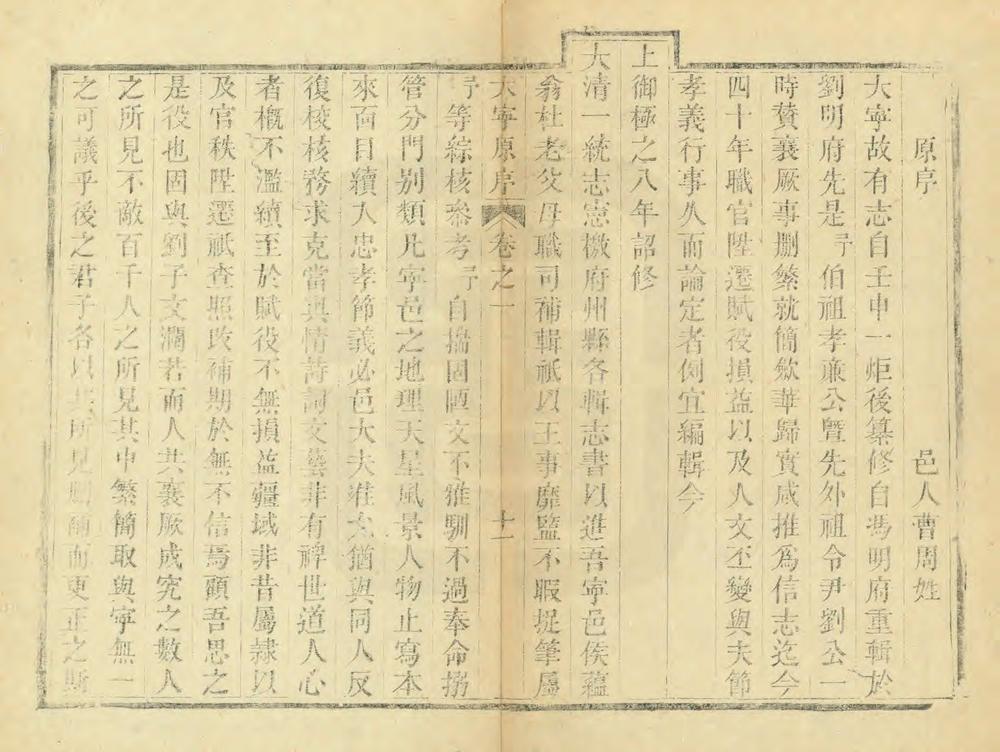 原序
邑人曹周姓
大寧故有志自壬申一炬後纂修自馮明府重輯於
劉明府先是予伯祖孝亷公曁先外祖令尹劉公一
時贊襄厥事刪繁就簡歛華歸實咸推爲信志迄今
四十年職官陞遷賦役損益以及人文丕變與夫節
孝義行事久而論定者例宜編輯今
上御極之八年詔修
大清一統志憲檄府州縣各輯志書以進吾寧邑侯蘊
翁杜老父母職司補輯祗以王事靡盬不暇捉筆屬
大寧原序 卷之一 十一
予等綜核叅考予自揣固陋文不雅馴不過奉命搦
管分門别類凡寧邑之地理天星風景人物止寫本
來面目續入忠孝節義必邑大夫
同人反
復校核務求克當輿情詩詞文藝非有裨世道人心
者槪不濫續至於賦役不無損益疆域非昔屬隷以
及官秩陞遷祗查照改補期於無不信焉顧吾思之
是役也固與劉子文瀾君而人共襄厥成究之數人
之所見不敵百千人之所見其中繁簡取與寧無一
之可議乎後之君子各以其所見
而更正之斯